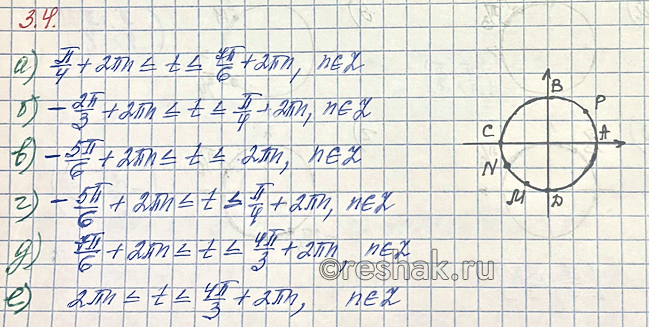 3.4.
а) π/4 + 2πn ≤ t ≤ 7π/6 + 2πn, n∈Z
б) -2π/3 + 2πn ≤ t ≤ π/4 + 2πn, n∈Z
в) -5π/6 + 2πn ≤ t ≤ 2πn, n∈Z
г) -5π/6 + 2πn ≤ t ≤ π/4 + 2πn, n∈Z
д) 7π/6 + 2πn ≤ t ≤ 4π/3 + 2πn, n∈Z
е) 2πn ≤ t ≤ 4π/3 + 2πn, n∈Z
B
P
C
A
N
M
D
©reshak.ru